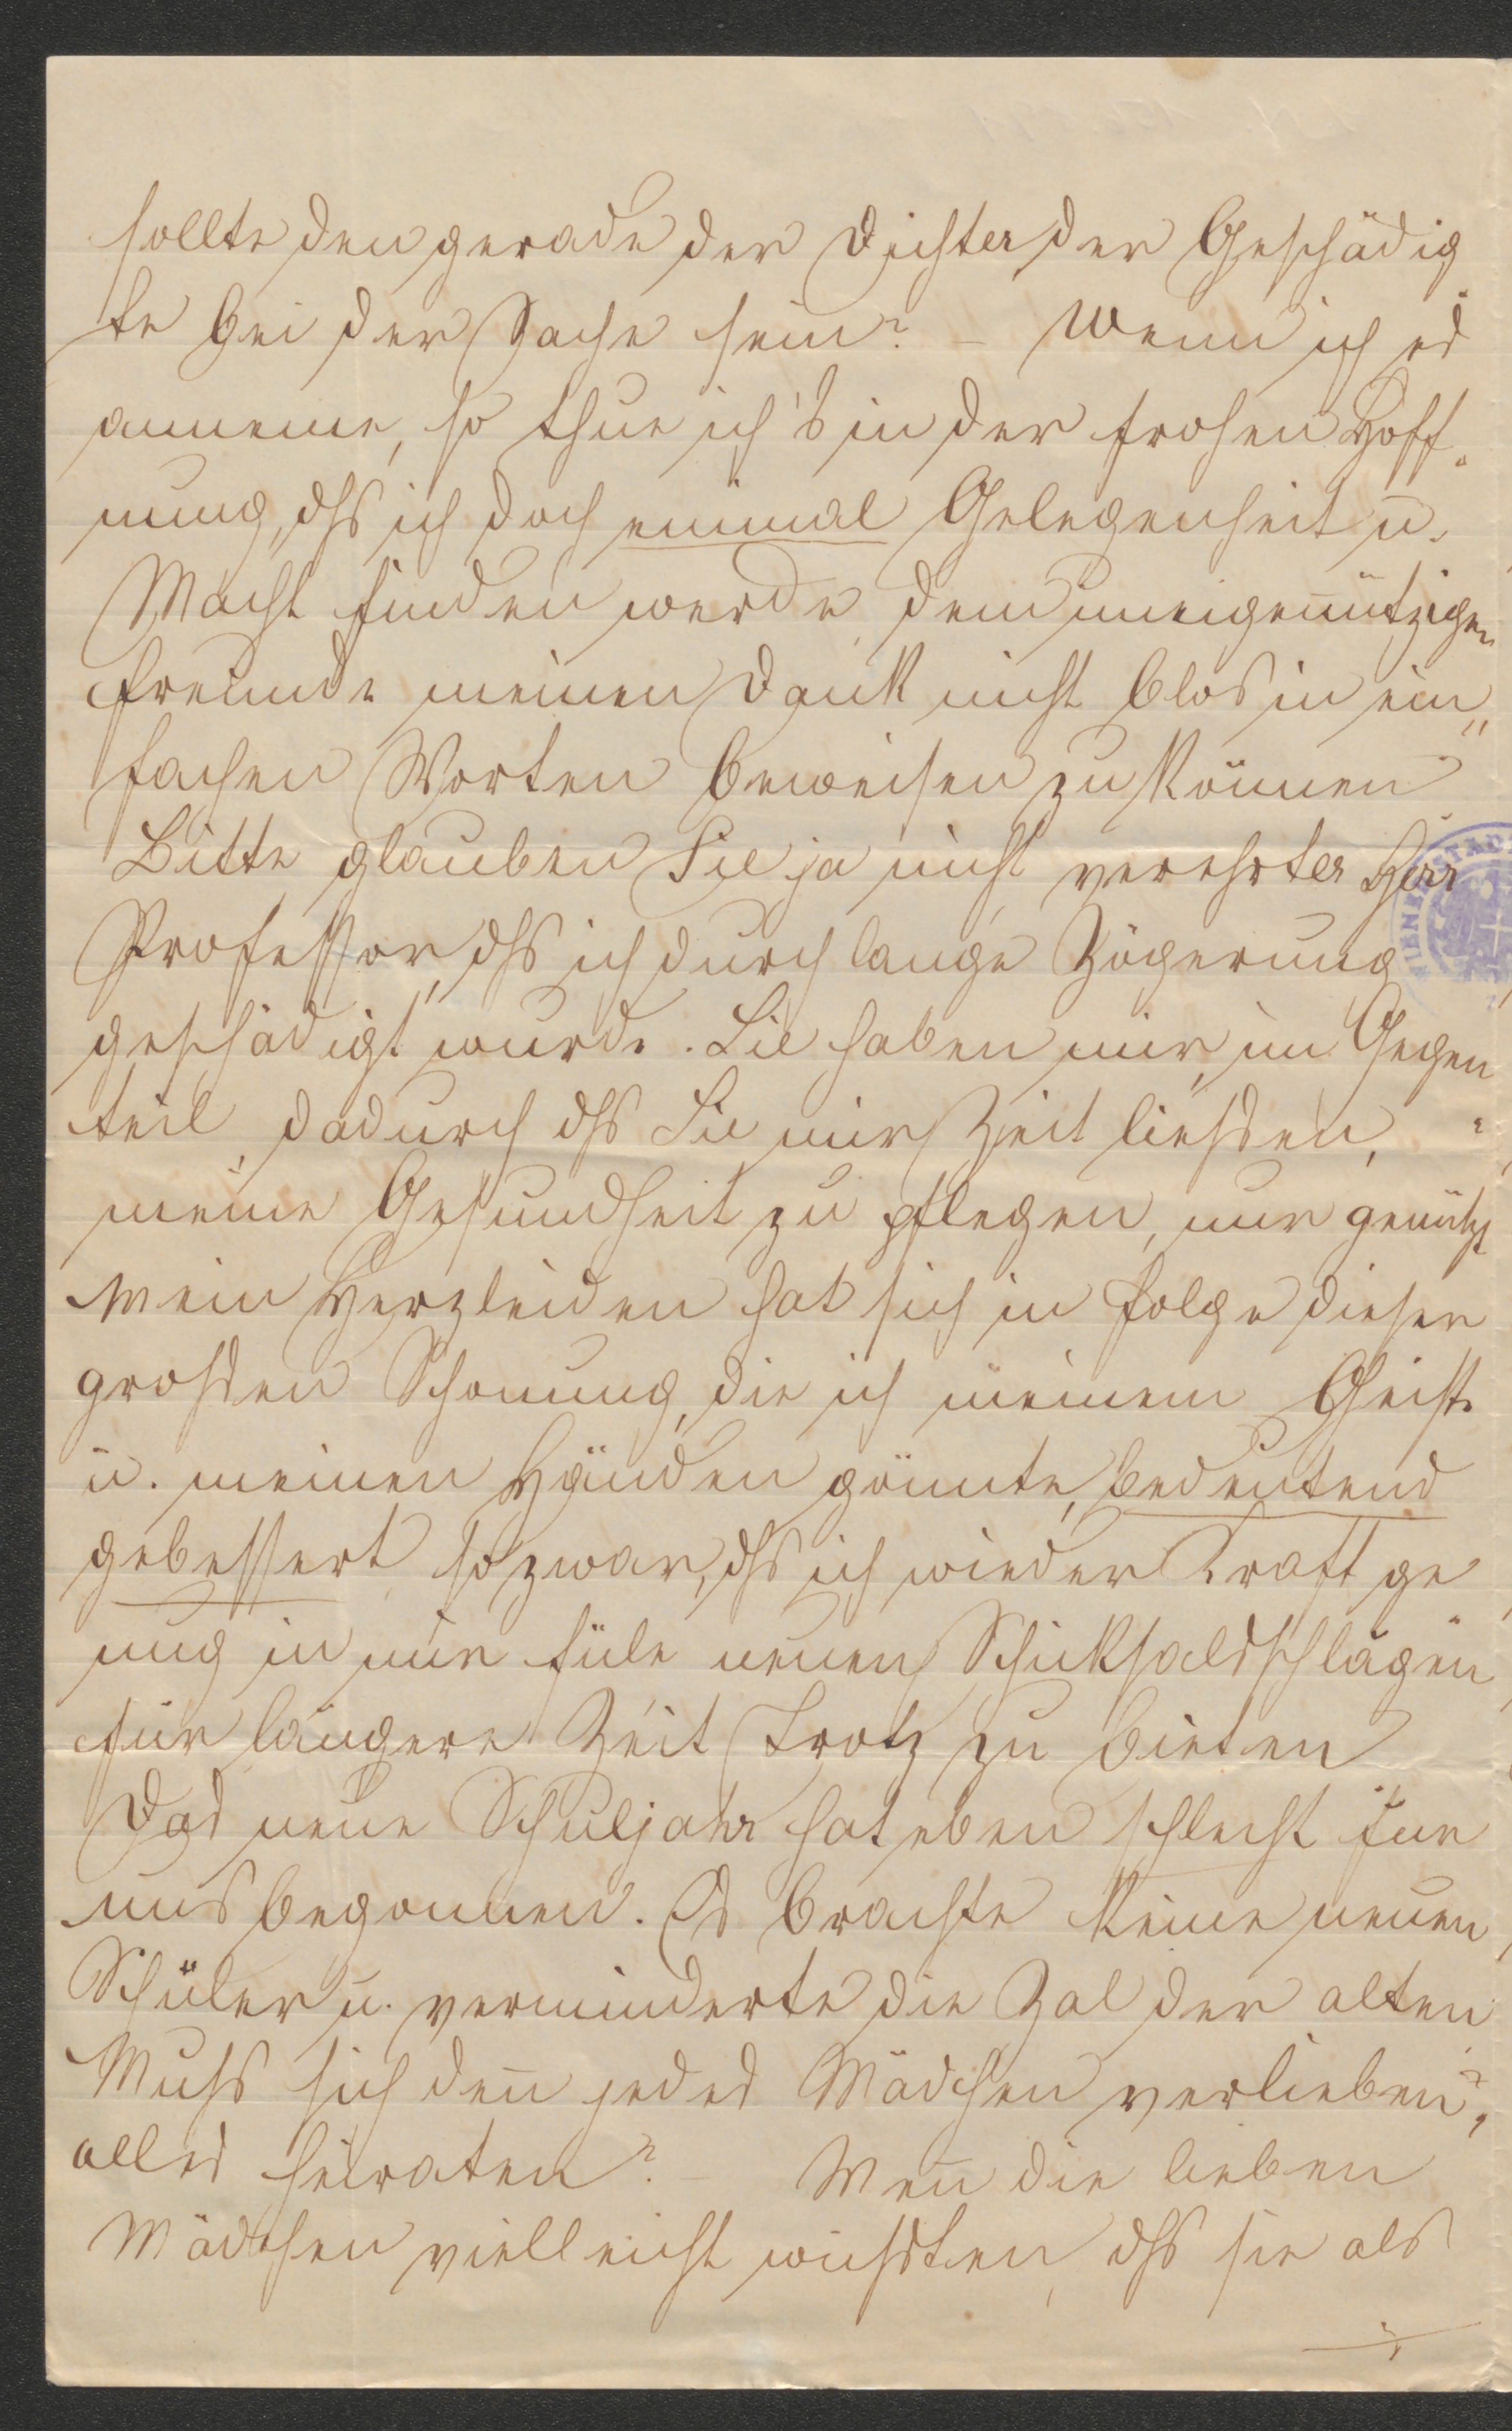 sollte den gerade der Dichter der Geschädig
te bei der Sache sein? – Wenn ich es
anneme, so thue ich's in der frohen Hoff-
nung, dſs ich doch einmal Gelegenheit u.
Macht finden werde, dem uneigennützigen
Freunde meinen Dank nicht blos in ein„
fachen Worten beweisen zu können
Bitte glauben Sie ja nicht, verehrter Herr
Professor, dſs ich durch lange Zögerung
geschädigt wurde. Sie haben mir, im Gegen
teil, dadurch dſs Sie mir Zeit lieſsen,
meine Gesundheit zu pflegen, nur genützt
Mein Herzleiden hat sich in Folge dieser
groſsen Schonung, die ich meinem Geiste
u. meinen Händen gönnte, bedeutend
gebessert, so zwar, dſs ich wieder Kraft ge
nug in mir füle neuen Schicksalsschlägen
für längere Zeit Trotz zu bieten
Das neue Schuljahr hat eben schlecht für
uns begonnen. Es brachte keine neuen
Schüler u. verminderte die Zal der alten
Muſs sich den̄ jedes Mädchen verlieben?,
alles heiraten? – Wen̄ die lieben
Mädchen vielleicht wüſsten, dſs sie als